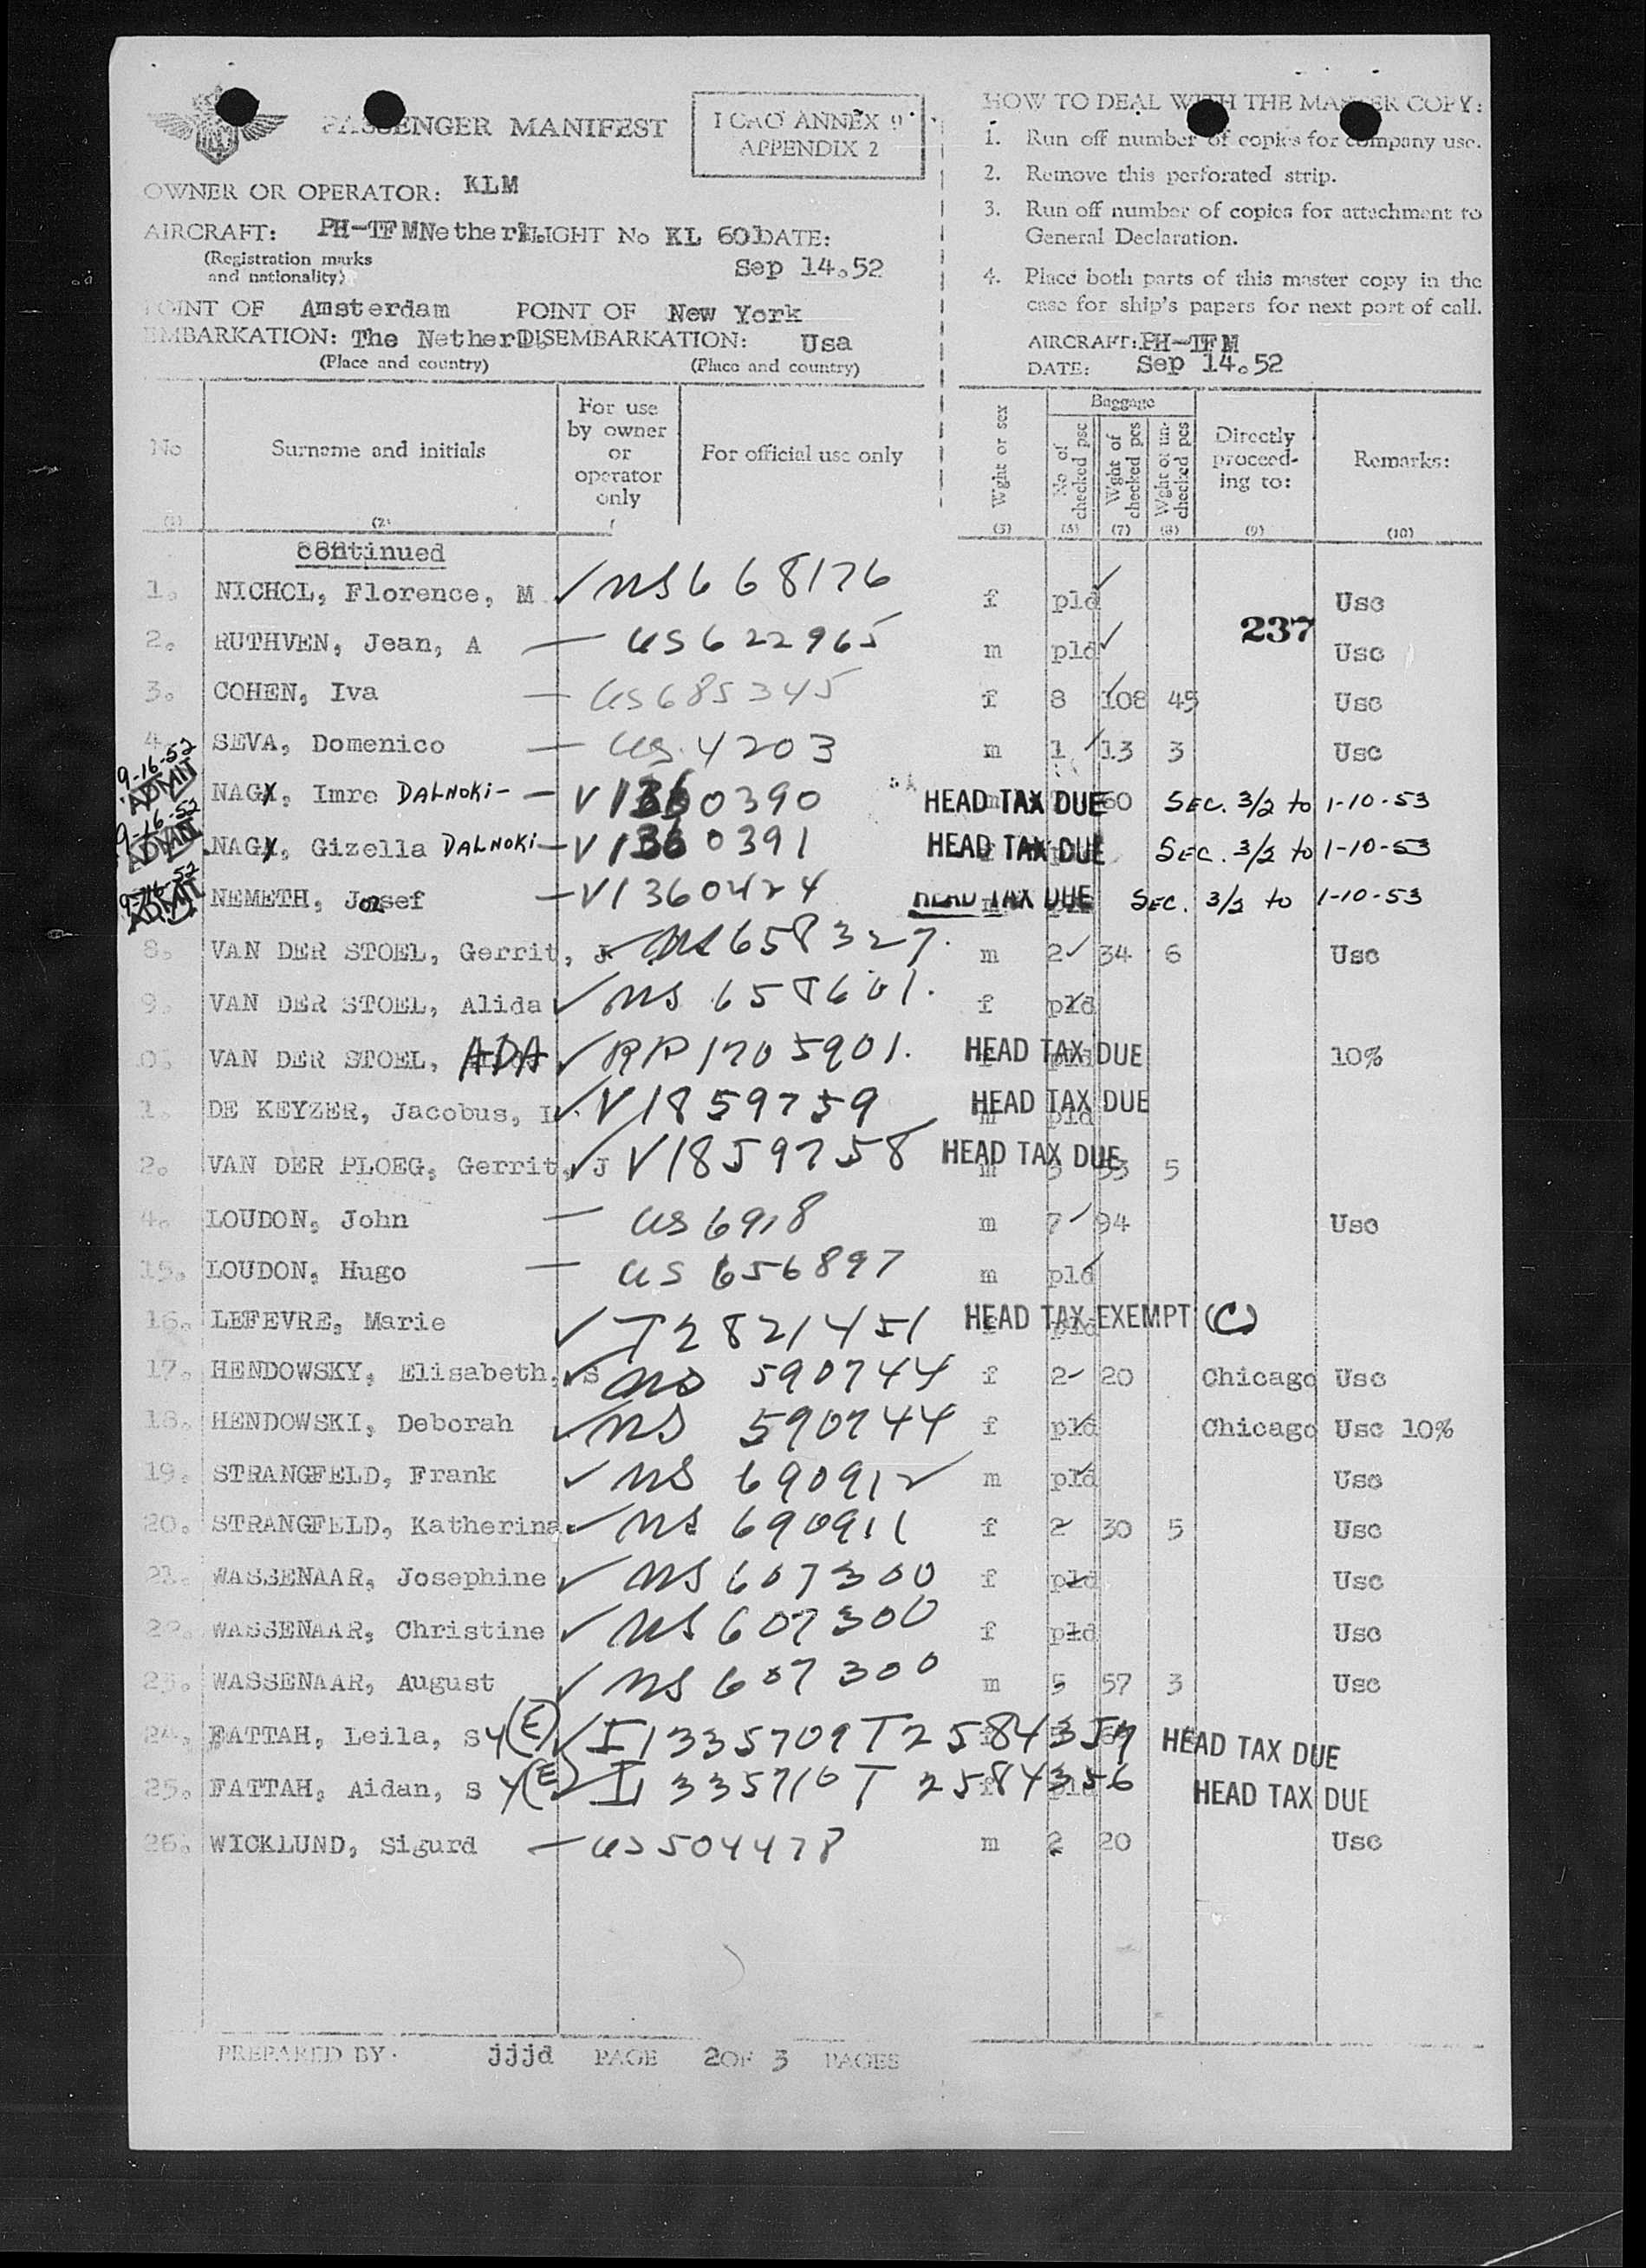 PASSENGER MANIFEST
ICAO ANNEX 9
APPENDIX 2
OWNER OR OPERATOR: KLM
AIRCRAFT: PH-TFM Netherl. FLIGHT No KL 601 DATE:
(Registration marks and nationality)
Sep 14.52
POINT OF EMBARKATION: Amsterdam The Netherl.
(Place and country)
POINT OF DISEMBARKATION: New York Usa
(Place and country)
HOW TO DEAL WITH THE MASTER COPY:
1. Run off number of copies for company use.
2. Remove this perforated strip.
3. Run off number of copies for attachment to
General Declaration.
4. Place both parts of this master copy in the
case for ship's papers for next port of call.
AIRCRAFT: PH-TFM
DATE: Sep 14.52
No
Surname and initials
For use by owner or operator only
For official use only
Wght or sex
Baggage
No of checked psc
Wght of checked pcs
Wght of un-checked pcs
Directly proceed-ing to:
Remarks:
(1) (2) (3) (5) (7) (8) (9) (10)
continued
1. NICHOL, Florence, M ns 668176 f pld Usc
237
2. RUTHVEN, Jean, A — US 622965 m pld Usc
3. COHEN, Iva — US 685345 f 8 108 45 Usc
4. SEVA, Domenico — US 4203 m 1 13 3 Usc
9-16-52 ADMIT NAGY, Imre DALNOKI- — V1360390 HEAD TAX DUE 60 SEC. 3/2 to 1-10-53
9-16-52 ADMIT NAGY, Gizella DALNOKI — V1360391 HEAD TAX DUE SEC. 3/2 to 1-10-53
9-16-52 ADMIT NEMETH, Jozsef — V1360424 HEAD TAX DUE SEC. 3/2 to 1-10-53
8. VAN DER STOEL, Gerrit, J ns 658327. m 2 34 6 Usc
9. VAN DER STOEL, Alida ns 658601. f pld
0. VAN DER STOEL, ADA RP 1705901. HEAD TAX DUE 10%
1. DE KEYZER, Jacobus, V1859759 HEAD TAX DUE pld
2. VAN DER PLOEG, Gerrit, J V1859758 HEAD TAX DUE m 53 5
4. LOUDON, John — US 6918 m 7 94 Usc
15. LOUDON, Hugo — US 656897 m pld
16. LEFEVRE, Marie T2821451 HEAD TAX EXEMPT (C)
17. HENDOWSKY, Elisabeth, S ns 590744 f 2 20 Chicago Usc
18. HENDOWSKI, Deborah ns 590744 f pld Chicago Usc 10%
19. STRANGFELD, Frank ns 690912 m pld Usc
20. STRANGFELD, Katherina ns 690911 f 2 30 5 Usc
21. WASSENAAR, Josephine ns 607300 f pld Usc
22. WASSENAAR, Christine ns 607300 f pld Usc
23. WASSENAAR, August ns 607300 m 5 57 3 Usc
24. FATTAH, Leila, S Y(E) I1335709 T2584357 HEAD TAX DUE
25. FATTAH, Aidan, S Y(E) I1335710 T2584356 HEAD TAX DUE
26. WICKLUND, Sigurd — US 504478 m 2 20 Usc
PREPARED BY. jjjd PAGE 2 OF 3 PAGES